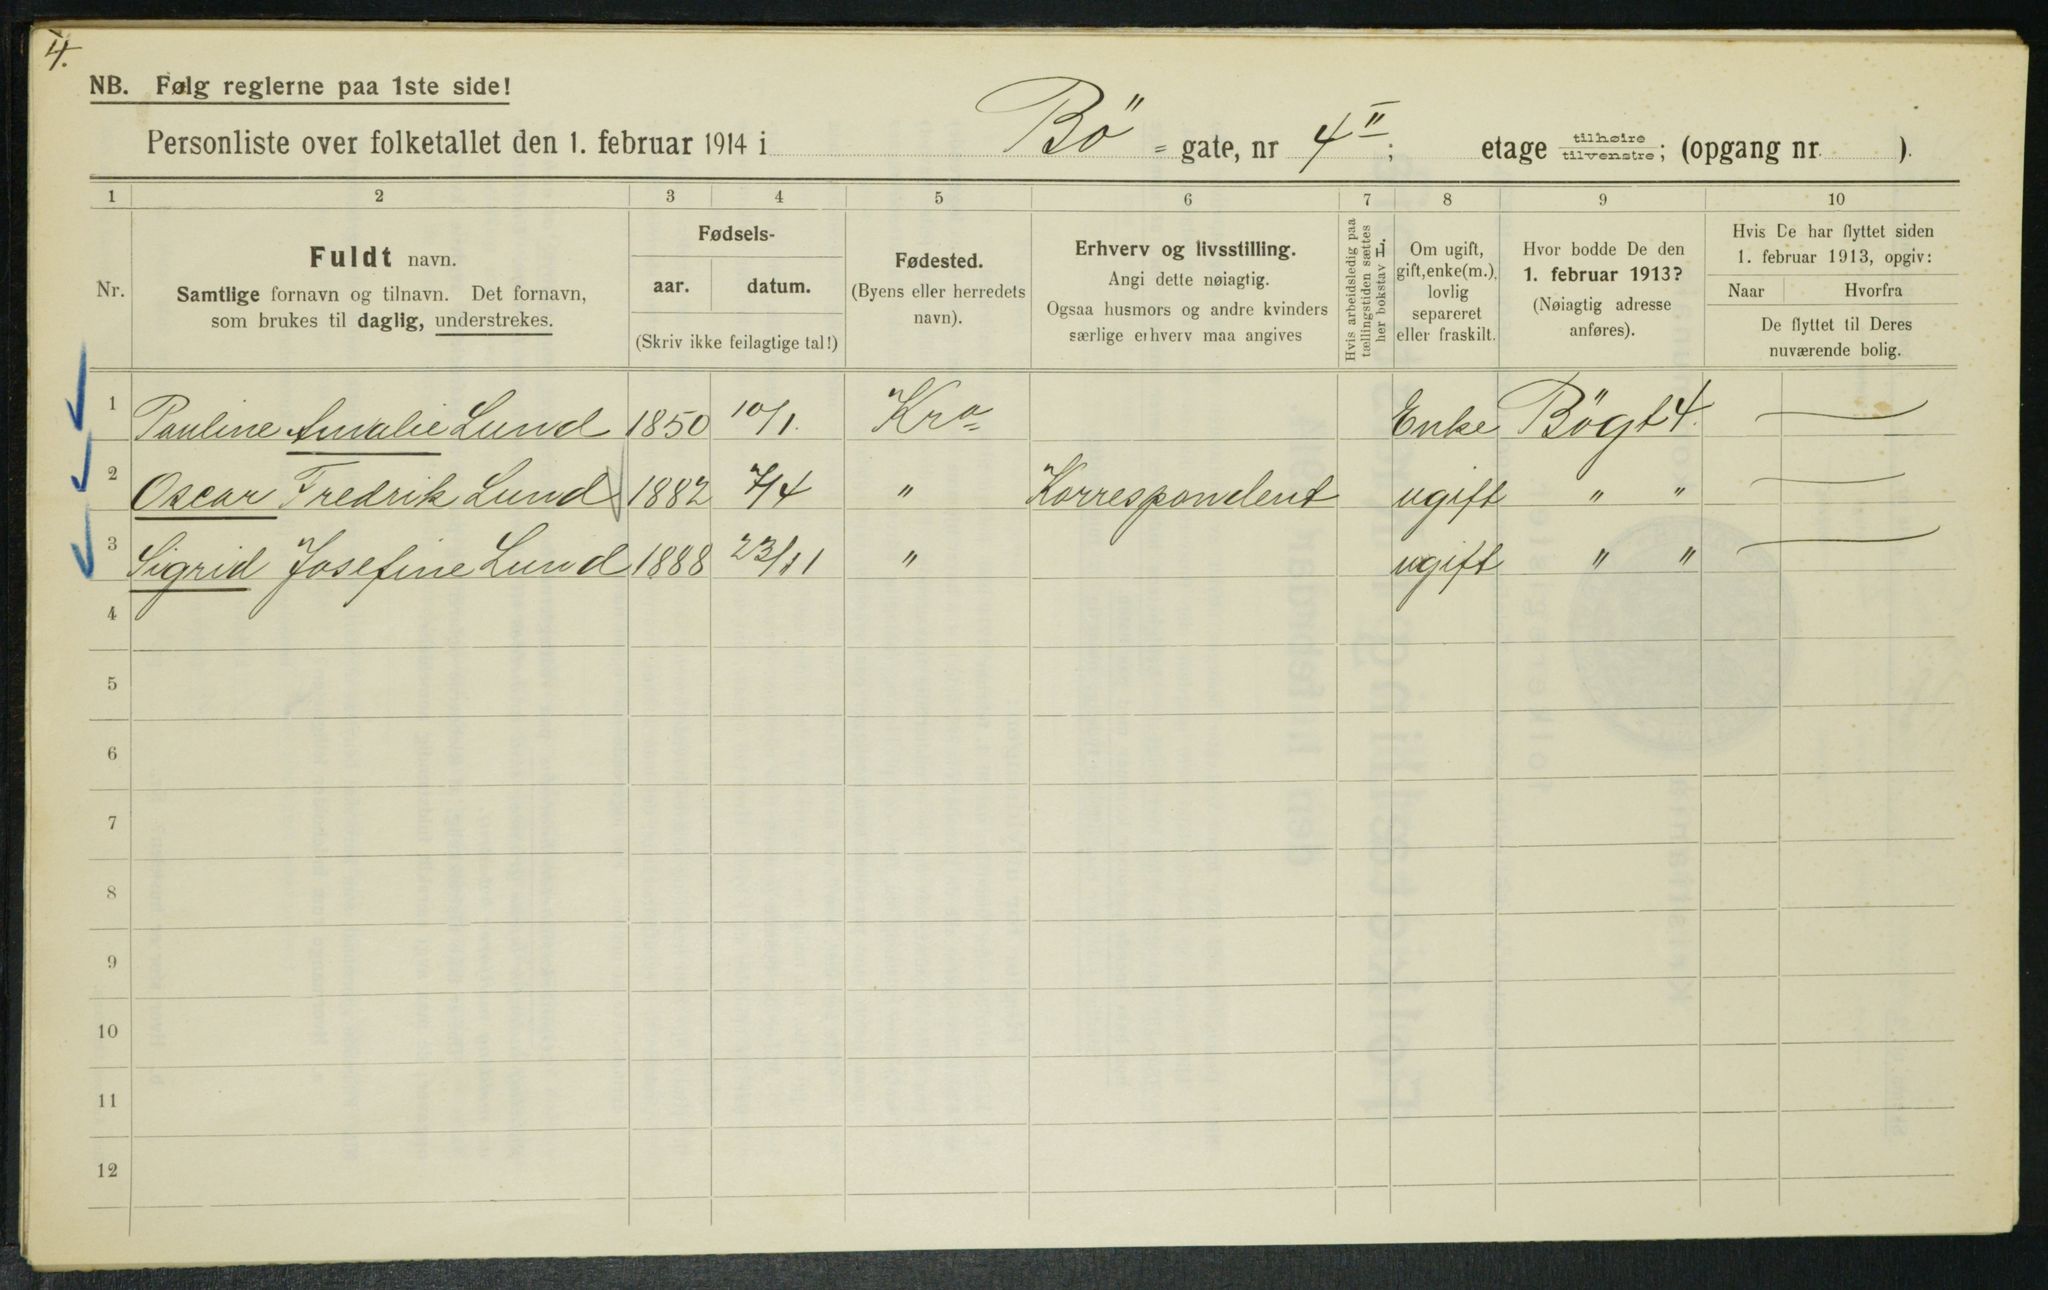 4.
NB. Følg reglerne paa 1ste side!
Personliste over folketallet den 1. februar 1914 i Bö = gate, nr 4 II; etage tilhøire tilvenstre; (opgang nr. ).
1 2 3 4 5 6 7 8 9 10
Nr.
Fuldt navn.
Samtlige fornavn og tilnavn. Det fornavn,
som brukes til daglig, understrekes.
Fødsels-
aar. datum.
(Skriv ikke feilagtige tal!)
Fødested.
(Byens eller herredets
navn).
Erhverv og livsstilling.
Angi dette nøiagtig.
Ogsaa husmors og andre kvinders
særlige erhverv maa angives
Hvis arbeidsledig paa
tællingstiden sættes
her bokstav L
Om ugift,
gift, enke(m.),
lovlig
separeret
eller fraskilt.
Hvor bodde De den
1. februar 1913?
(Nøiagtig adresse
anføres).
Hvis De har flyttet siden
1. februar 1913, opgiv:
Naar Hvorfra
De flyttet til Deres
nuværende bolig.
1 Pauline Amalie Lund 1850 10/1. Kra Enke Bögt 4. —
2 Oscar Fredrik Lund 1882 7/4 " Korrespondent ugift " " —
3 Sigrid Josefine Lund 1888 23/11 " ugift " " —
4
5
6
7
8
9
10
11
12